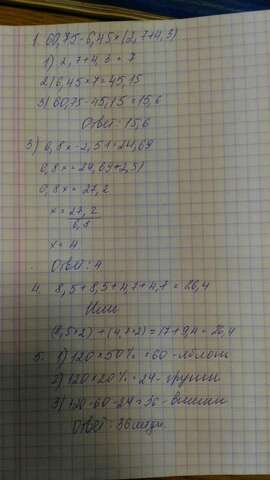 1. 60,75-6,45×(2,7+4,3)
1) 2,7+4,3=7
2) 6,45×7=45,15
3) 60,75-45,15=15,6
Ответ: 15,6
3) 6,8х-2,51=24,69
6,8х=24,69+2,51
6,8х=27,2
х=27,2
6,8
х=4
Ответ: 4
4. 8,5+8,5+4,7+4,7=26,4
Или
(8,5×2)+(4,7×2)=17+9,4=26,4
5. 1) 120×50%=60-яблони
2) 120×20%=24-груши
3) 120-60-24=36-вишни
Ответ: 36